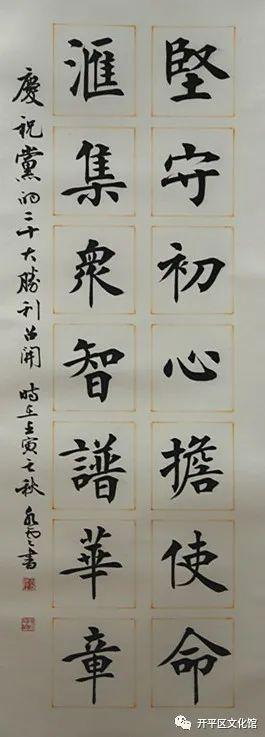 堅守初心擔使命
滙集衆智譜華章
慶祝黨的二十大勝利召開 時在壬寅之秋
書
开平区文化馆